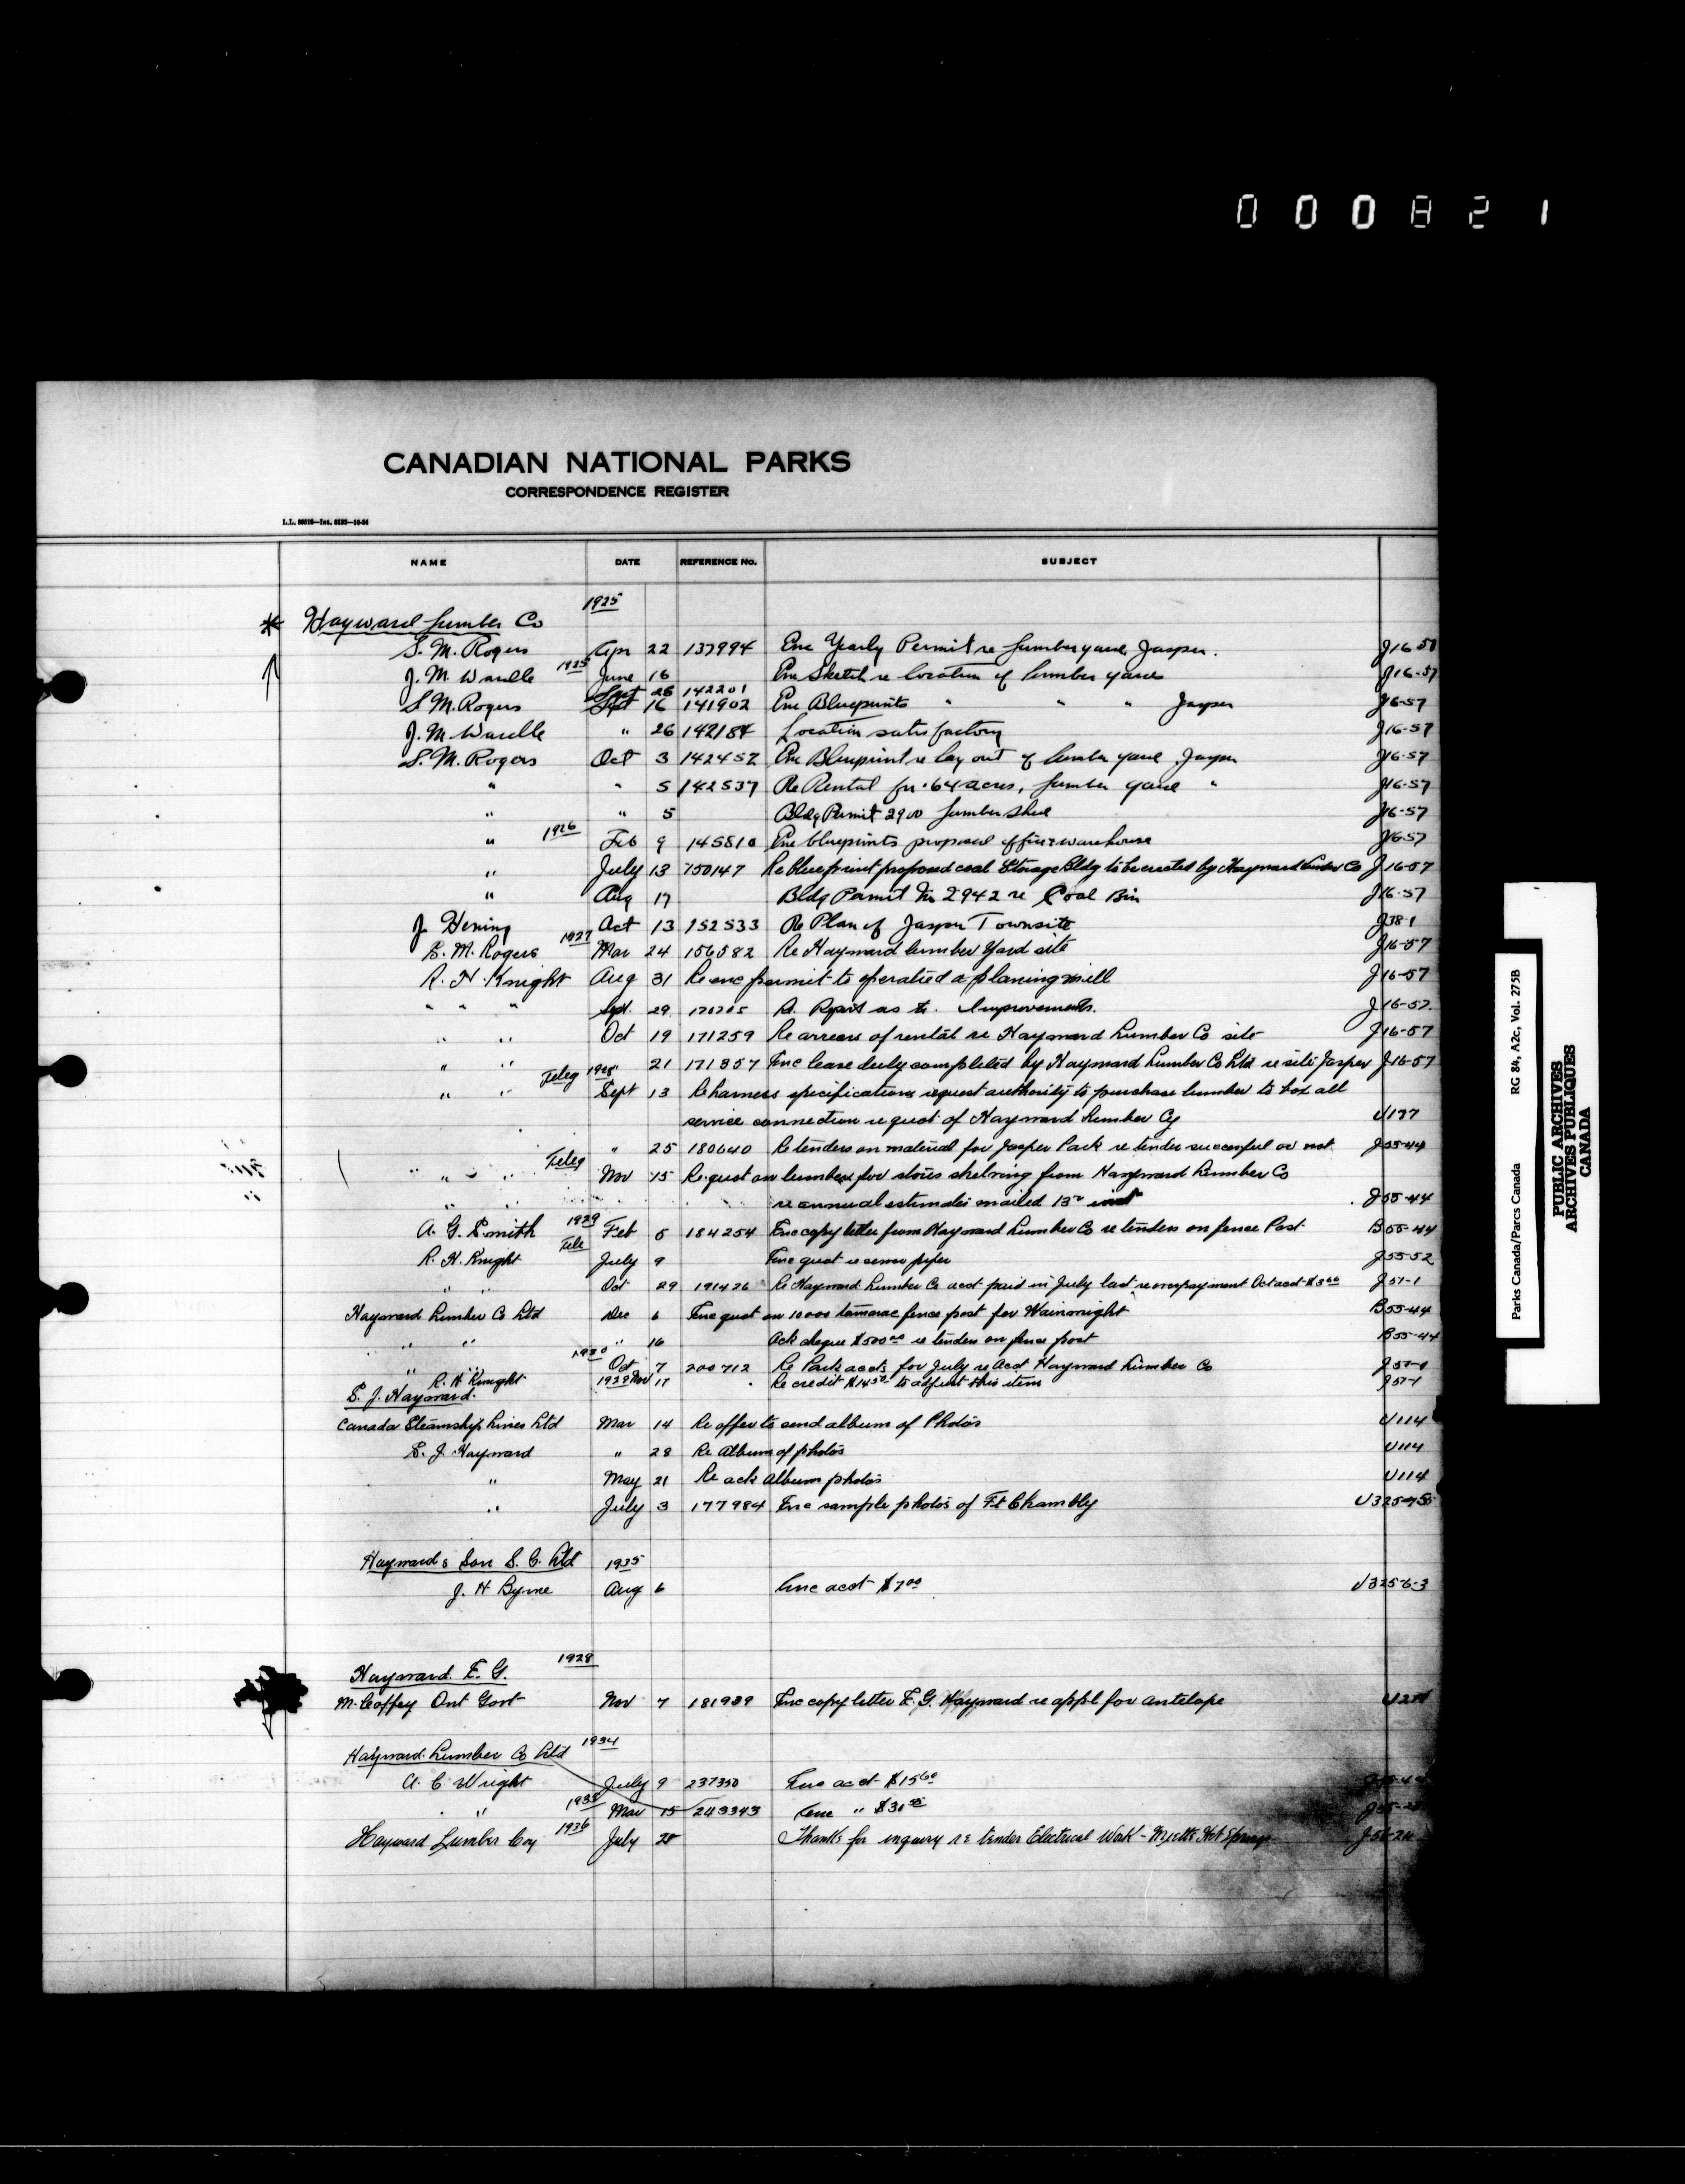 000821
CANADIAN NATIONAL PARKS
CORRESPONDENCE REGISTER
NAME DATE REFERENCE No. SUBJECT
1925
Hayward Lumber Co
S. M. Rogers Apr 22 137994 Enc Yearly Permit re Lumber yard, Jasper. J16-57
J. M. Wardle 1925 June 16 Enc Sketch re location of lumber yard J16-57
Sept 26 142201
S. M. Rogers Sept 16 141902 Enc Blueprints " " " Jasper J16-57
J. M. Wardle " 26 142184 Location satisfactory J16-57
S. M. Rogers Oct 3 142452 Enc Blueprint re lay out of lumber yard Jasper J16-57
" " 5 142537 Re Rental for .64 acres, lumber yard " J16-57
" " 5 Bldg Permit 2900 Lumber Shed J16-57
" 1926 Feb 9 145810 Enc blueprints proposed office & warehouse J16-57
" July 13 150147 Re blueprint proposed coal Storage Bldg to be erected by Hayward Lumber Co J16-57
" Aug 17 Bldg Permit No 2942 re Coal Bin J16-57
J. Hening Oct 13 152533 Re Plan of Jasper Townsite J38-1
S. M. Rogers 1927 Mar 24 156582 Re Hayward lumber Yard site J16-57
R. H. Knight Aug 31 Re enc permit to operated a planing mill J16-57
" " " Sept. 29 Re. Report as to Improvements. J16-57.
" " Oct 19 171259 Re arrears of rental re Hayward Lumber Co site J16-57
" " " 21 171357 Enc lease duly completed by Hayward Lumber Co Ltd re site Jasper J16-57
" " Teleg 1928 Sept 13 Re harness specifications request authority to purchase lumber to box all
service connection re quot of Hayward Lumber Cy U177
" 25 180640 Re tenders on material for Jasper Park re tender successful or not J55-44
" " " Teleg Nov 15 Re quot on lumber for stores shelving from Hayward Lumber Co
" " re annual estimates mailed 13th inst J55-44
A. G. Smith 1929 Feb 5 184254 Enc copy letter from Hayward Lumber Co re tenders on fence Post B55-44
R. H. Knight Tele July 9 Enc quot re sewer pipe J55-52
" " Oct 29 191426 Re Hayward Lumber Co acct paid in July last re overpayment Oct acct J57-1
Hayward Lumber Co Ltd Dec 6 Enc quot on 10000 tamarac fence post for Wainwright B55-44
" " " 16 Ack cheque $500.00 re tenders on fence post B55-44
" " 1930 Oct 7 200712 Re Park accts for July re Acct Hayward Lumber Co J57-1
R. H. Knight Nov 17 Re credit to adjust this item J57-1
S. J. Hayward. 1928
Canada Steamship Lines Ltd Mar 14 Re offer to send album of Photos U114
S. J. Hayward " 28 Re Album of photos U114
" May 21 Re ack album photos U114
" July 3 177984 Enc sample photos of Ft Chambly
Hayward & Son S. C. Ltd 1935
J. H Byrne Aug 6 Enc acct $7.00 U325-6-3
Hayward. E. G. 1928
McCoffey Ont Govt Nov 7 181989 Enc copy letter E. G. Hayward re appl for antelope
Hayward Lumber Co Ltd 1934
A. C Wright July 9 237350 Enc acct $15.60
" 1935 Mar 15 243343 Enc "
Hayward Lumber Coy 1936 July 28 Thanks for inquiry re tender Electrical Work - Miette Hot Springs
Parks Canada/Parcs Canada RG 84, A2c, Vol. 275B
PUBLIC ARCHIVES
ARCHIVES PUBLIQUES
CANADA